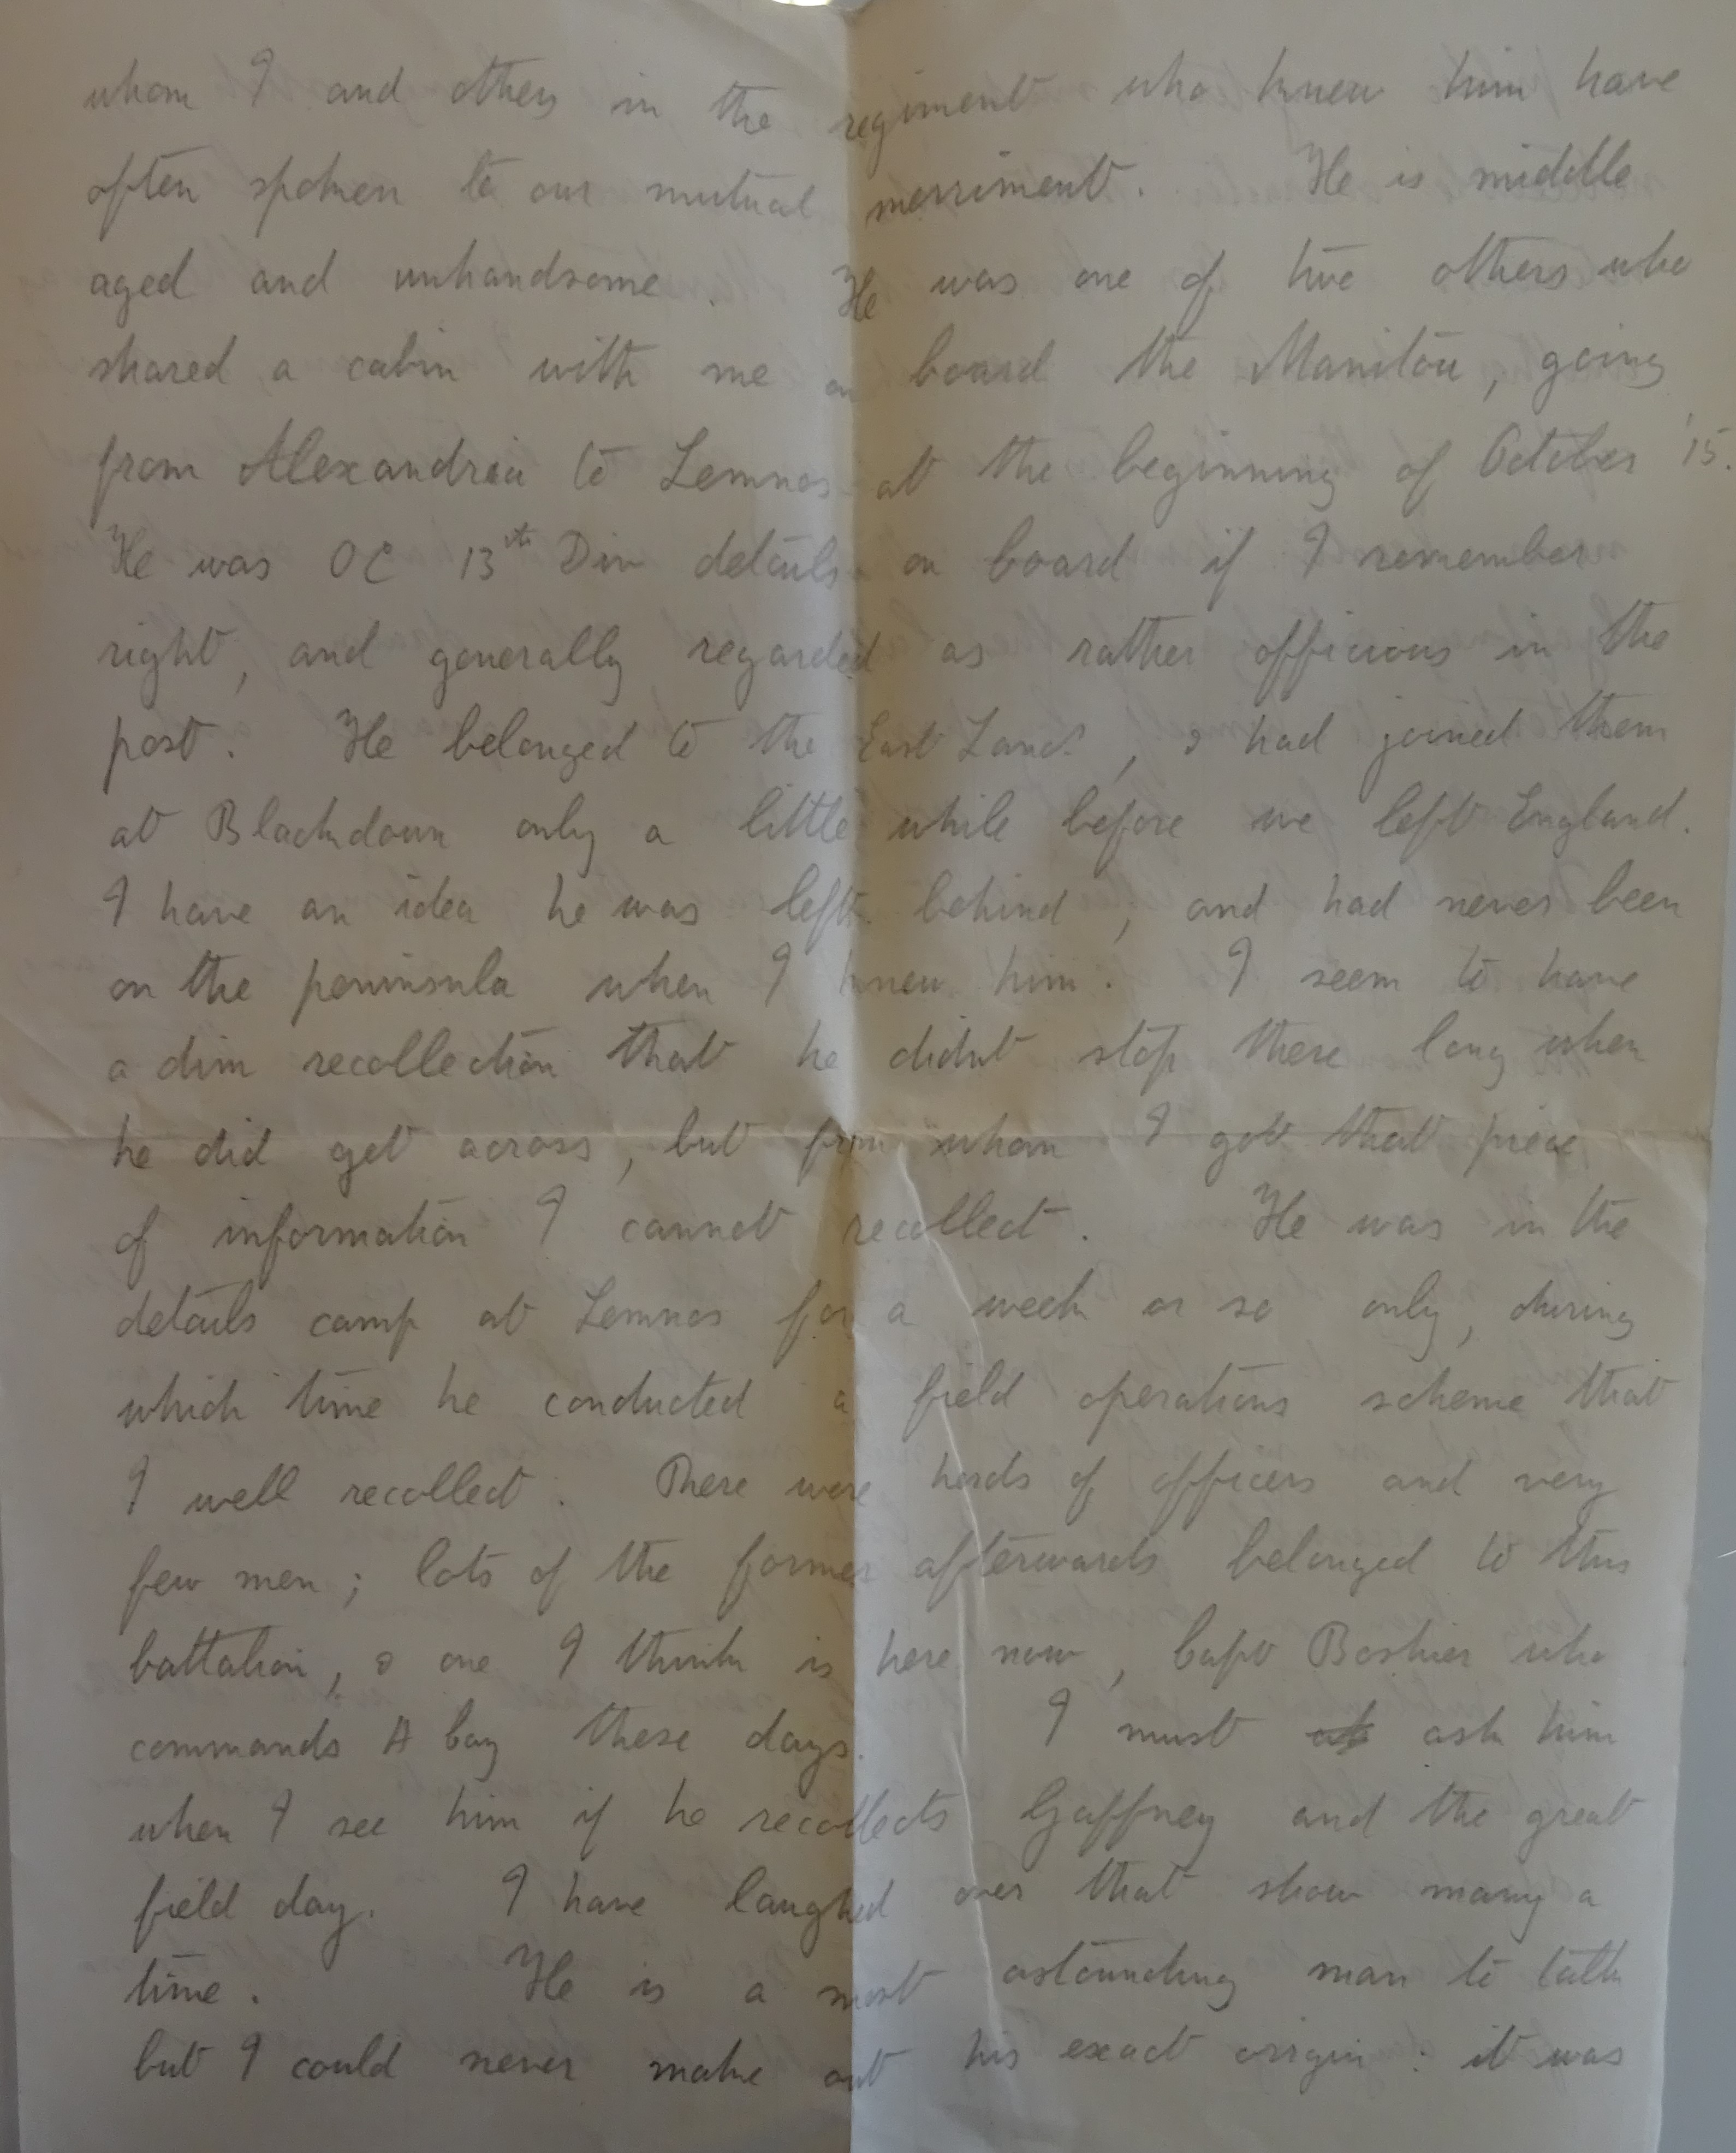 whom I and others in the regiment who knew him have
often spoken to our mutual merriment. He is middle
aged and unhandsome. He was one of two others who
shared a cabin with me on board the Manitou, going
from Alexandria to Lemnos at the beginning of October '15.
He was OC 13th Div details on board if I remember
right, and generally regarded as rather officious in the
post. He belonged to the East Lancs, & had joined them
at Blackdown only a little while before we left England.
I have an idea he was left behind; and had never been
on the peninsula when I knew him. I seem to have
a dim recollection that he didnt stop there long when
he did get across, but from whom I got that piece
of information I cannot recollect. He was in the
details camp at Lemnos for a week or so only, during
which time he conducted a field operations scheme that
I well recollect. There were herds of officers and very
few men; lots of the former afterwards belonged to this
battalion, & one I think is here now, Capt Boshier who
commands A Coy these days. I must ask him
when I see him if he recollects Gaffney and the great
field day. I have laughed over that show many a
time. He is a most astounding man to talk
but I could never make out his exact origin: it was